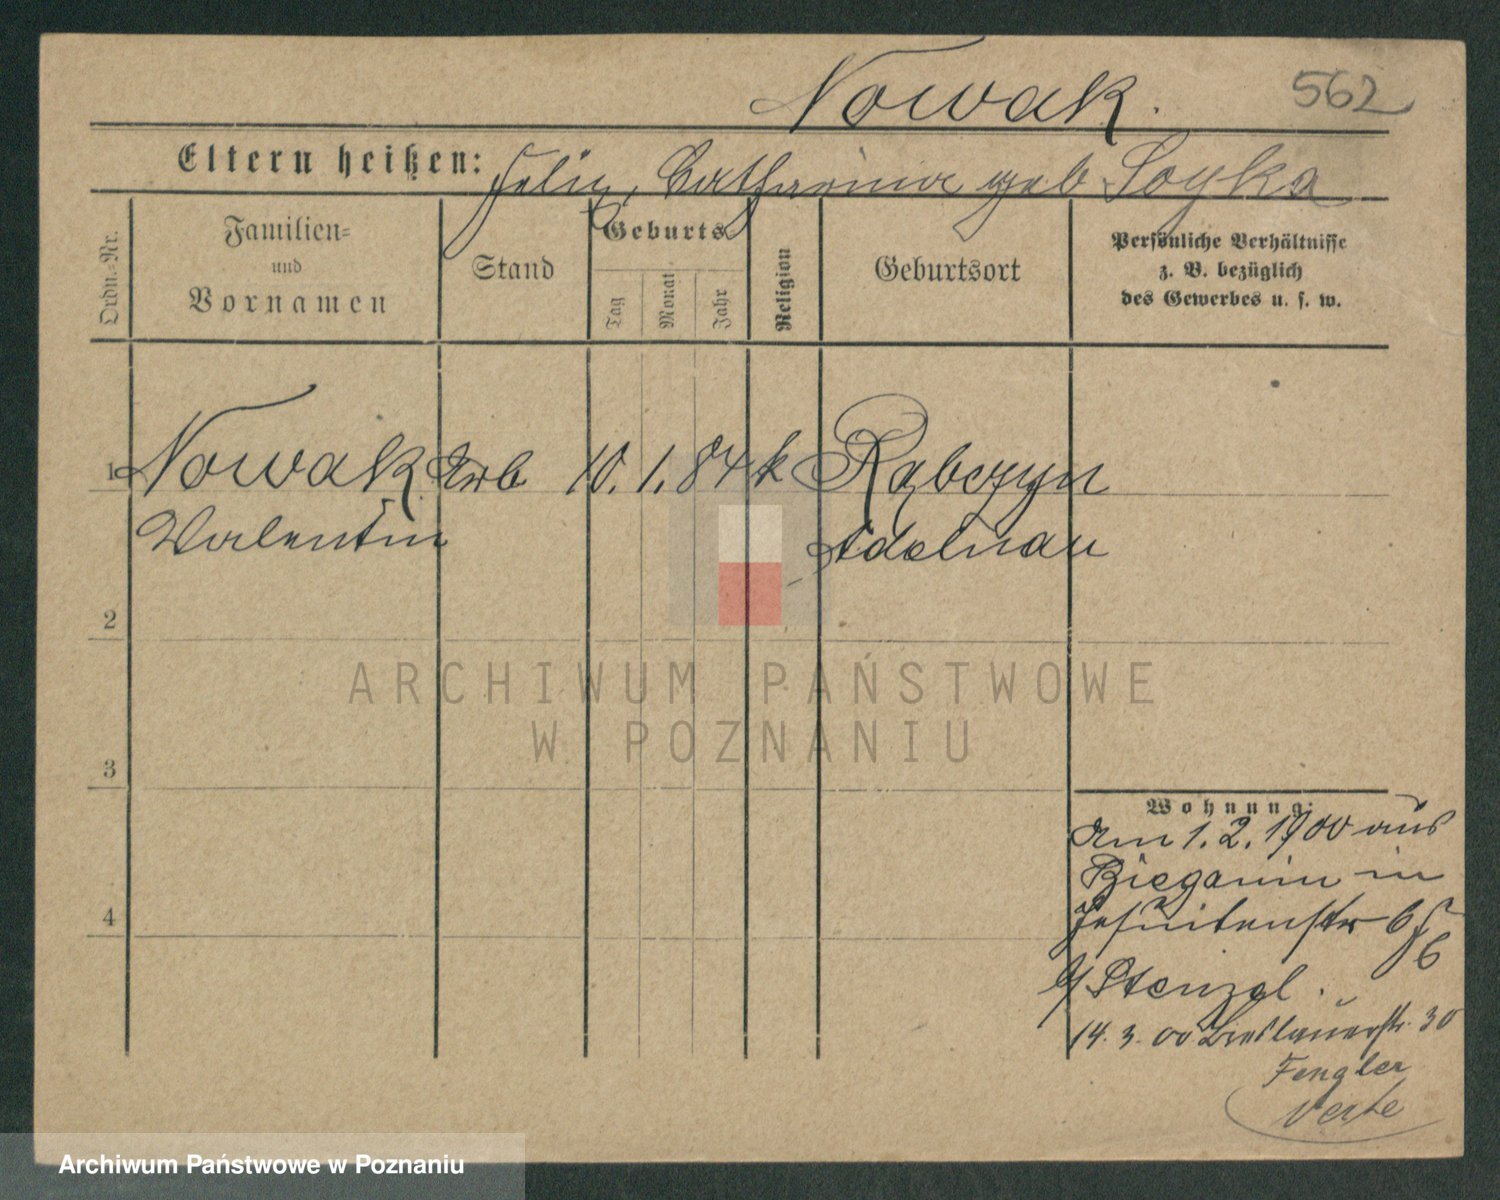 Nowak.
562
Eltern heißen: Felix, Catharina geb Soyka
Ordn.-Nr.
Familien-
und
Vornamen
Stand
Geburts
Tag
Monat
Jahr
Religion
Geburtsort
Persönliche Verhältnisse
z. B. bezüglich
des Gewerbes u. s. w.
1 Nowak Arb 10. 1. 84 k Rąbczyn
Valentin Adelnau
2
3
4
ARCHIWUM PAŃSTWOWE
W POZNANIU
Wohnung:
Am 1. 2. 1900 aus
Bieganin in
Jesuitenstr
b/ Stenzel.
14. 3. 00 Breslauerstr. 30
Fengler
Archiwum Państwowe w Poznaniu